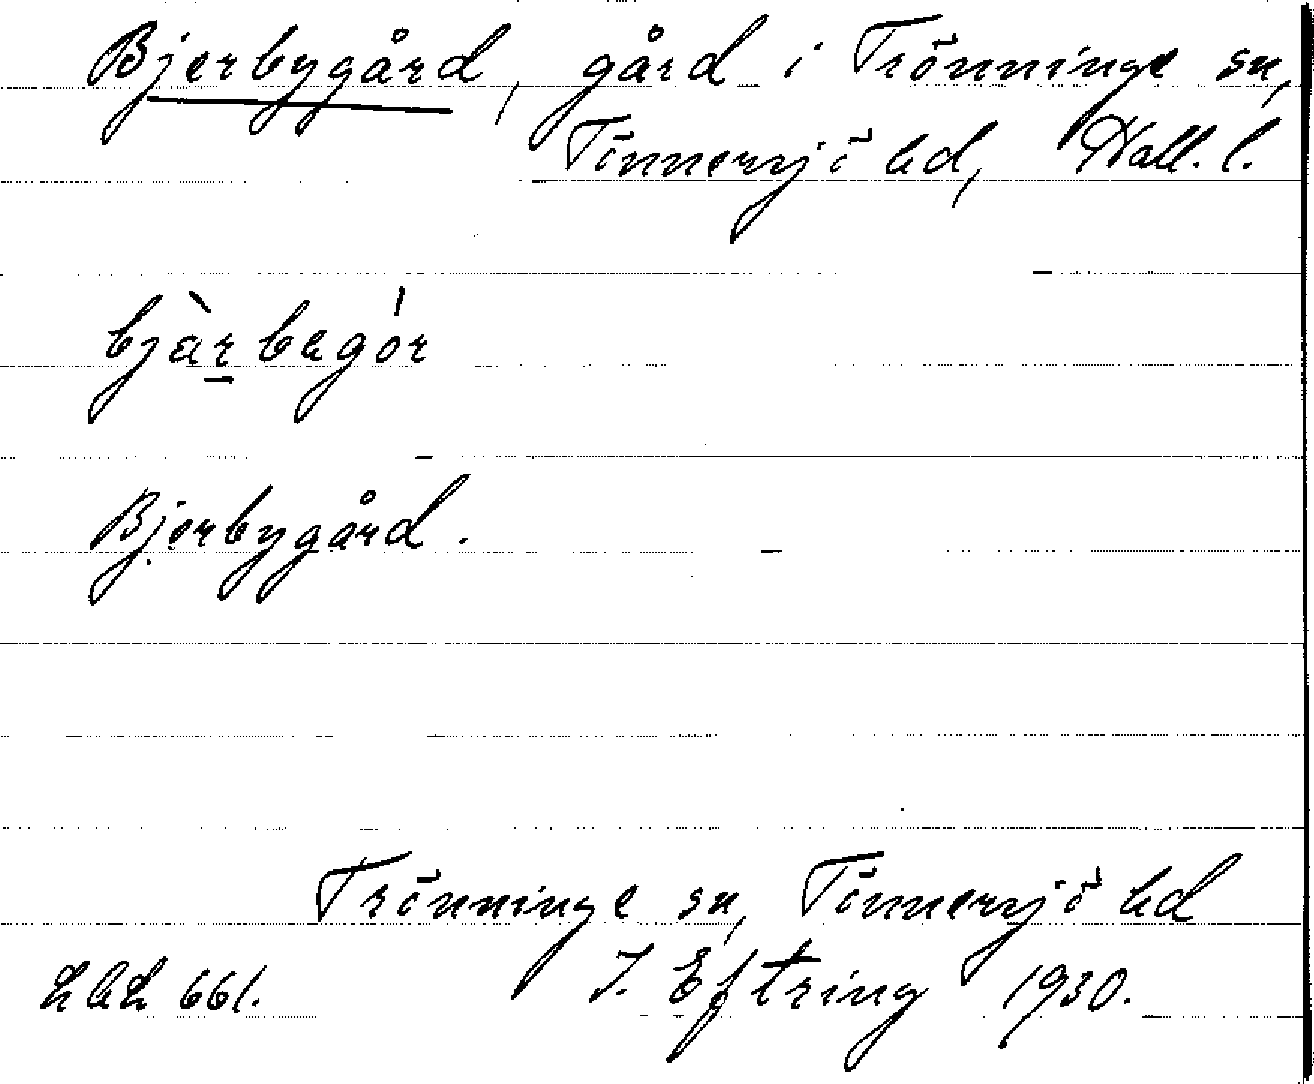 Bjerbygård, gård i Trönninge sn,
Tönnersjö hd, Hall. l.
bjàrbagór
Bjerbygård.
Trönninge sn, Tönnersjö hd
661. J. Eftring 1930.